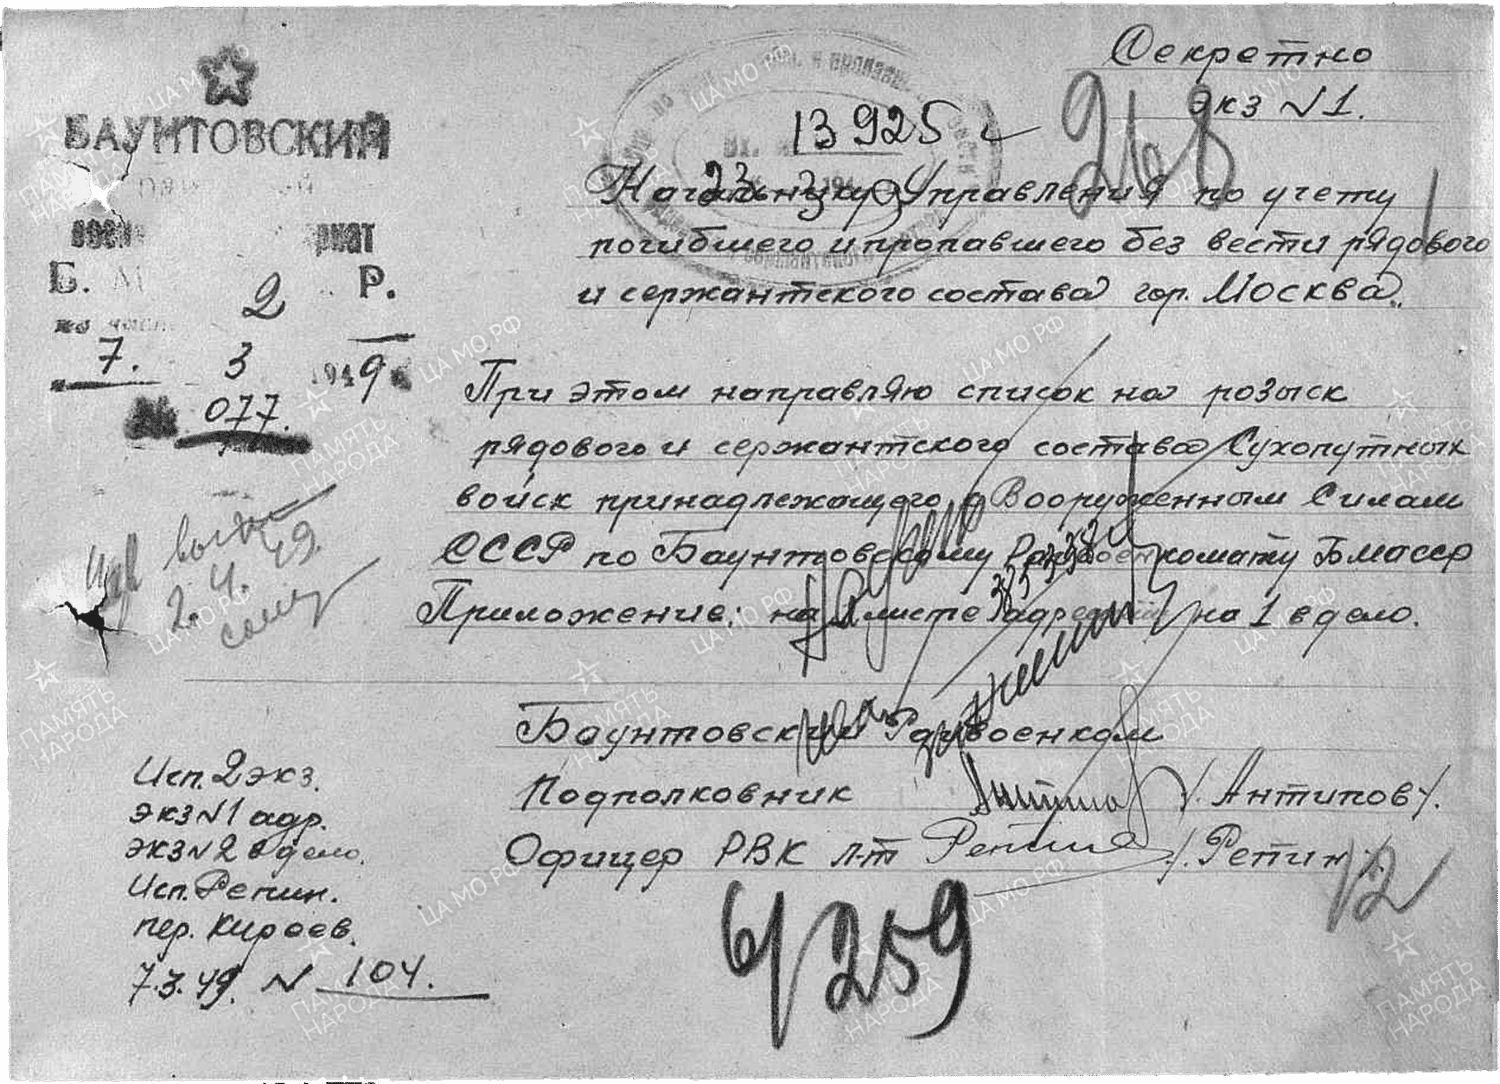 Секретно
экз №1.
БАУНТОВСКИЙ
Б. М Р.
2
7. 3 1949
№ 077.
13925
23 3
268
Начальнику Управления по учету
погибшего и пропавшего без вести рядового
и сержантского состава гор. Москва.
При этом направляю список на розыск
рядового и сержантского состава Сухопутных
войск принадлежащего Вооруженным Силам
СССР по Баунтовскому Райвоенкомату БМАССР
Приложение: на листе адресату на 1 в дело.
2.4.49.
Баунтовский Райвоенком
Подполковник /Антипов/.
Офицер РВК л-т Репин /Репин/.
12
6/259
Исп. 2 экз.
экз №1 адр.
экз №2 в дело.
Исп. Репин.
пер. Киреев.
7.3.49. № 104.
ПАМЯТЬ НАРОДА
ЦА МО РФ